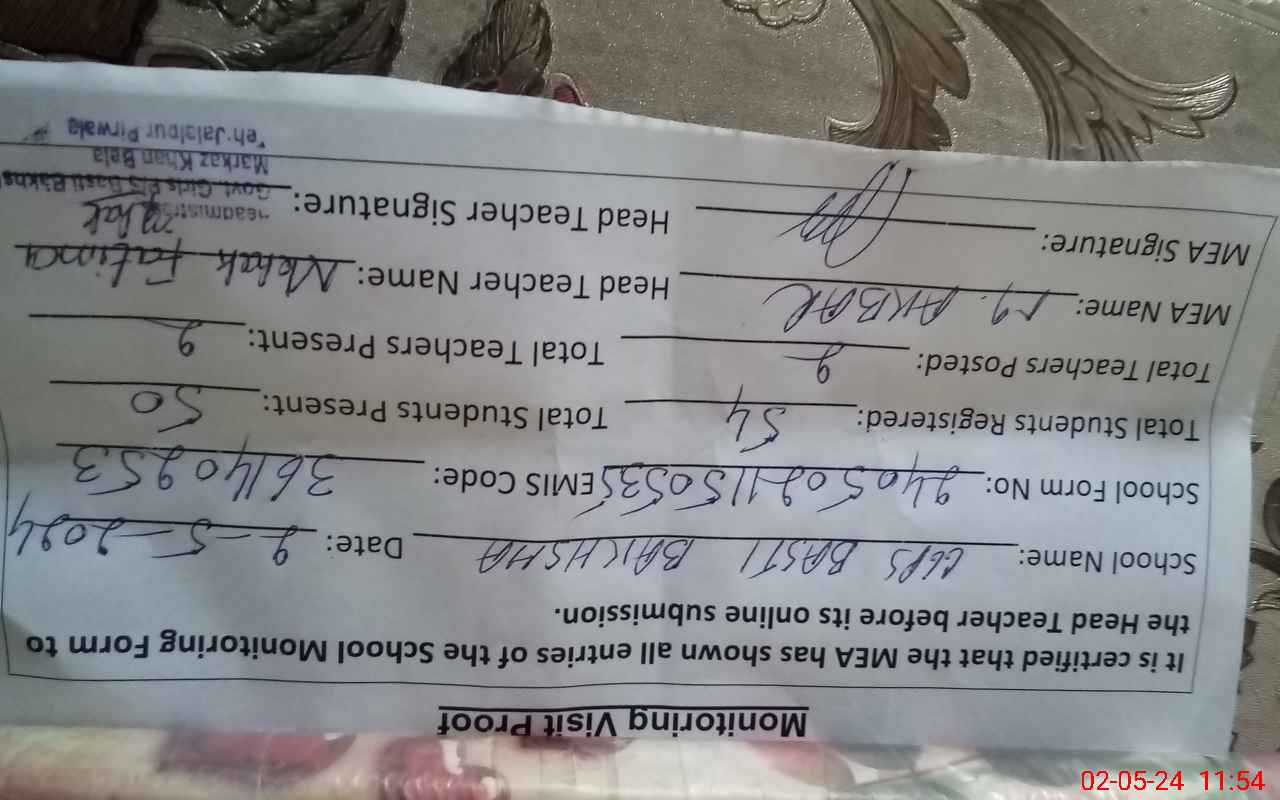 Monitoring Visit Proof
It is certified that the MEA has shown all entries of the School Monitoring Form to
the Head Teacher before its online submission.
School Name: GGPS BASTI BAKHSHA Date: 2-5-2024
School Form No: 2405021150535 EMIS Code: 36140253
Total Students Registered: 54 Total Students Present: 50
Total Teachers Posted: 2 Total Teachers Present: 2
MEA Name: M. AKBAR Head Teacher Name: Mehak Fatima
MEA Signature: Head Teacher Signature: Mehak
Headmistress
Govt. Girls P/S Basti Bakhsha
Markaz Khan Bela
Teh: Jalalpur Pirwala
02-05-24 11:54